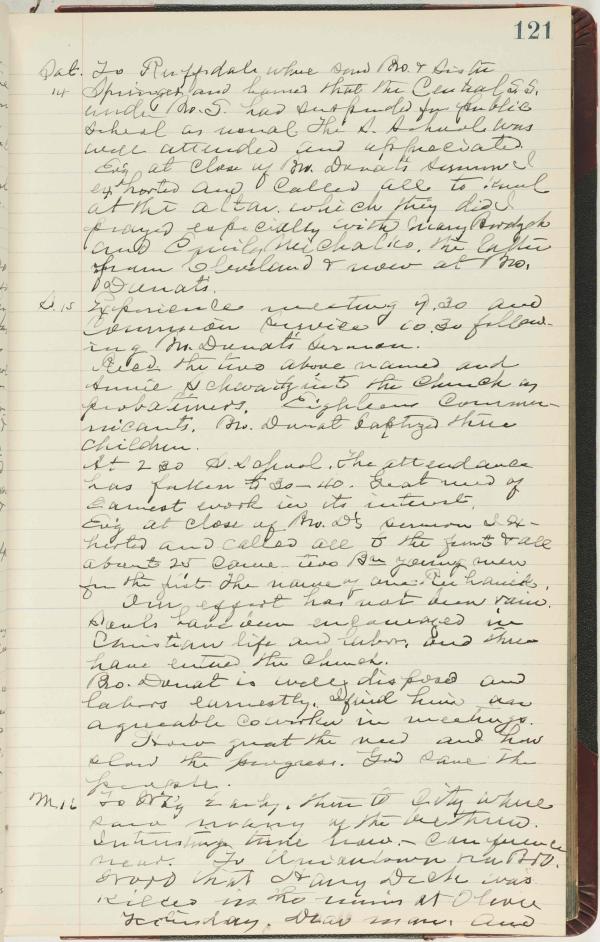 121
Sat. To Ruffsdale where saw Bro. & Sister
14 Springer and learned that the Central S.S.
under Bro. S. had suspended for public
school as usual. The S. School was
well attended and appreciated.
Ev'g at close of Bro. Donat's sermon I
exhorted and called all to kneel
at the altar which they did. I
prayed especially with Mary
and Emily Michalko, the latter
from Cleveland & now at Bro.
Donat's.
S. 15 Experience meeting 9.30 and
Communion service 10.30 follow-
ing Bro. Donat's sermon.
Rec'd the two above named and
Annie Schwartz into the Church as
probationers. Eighteen Commu-
nicants. Bro. Donat baptized three
children.
At 2 30 S. School. The attendance
has fallen to 30-40. Great need of
earnest work in its interest.
Ev'g at close of Bro. D's sermon I ex-
horted and called all to the front & all
about 25 came - two Bn young men
for the first. The name of one
Our effort has not been vain.
Souls have been encouraged in
Christian life and labor, and three
have entered the Church.
Bro. Donat is well disposed and
labors earnestly. I find him an
agreeable coworker in meetings.
How great the need and how
slow the progress. God save the
people.
M. 16 To early, then to City where
saw many of the brethren.
Interesting time now - Conference
near. To Uniontown via B&O.
Word that Harry Dick was
killed in the mine at
yesterday. Dear man. And